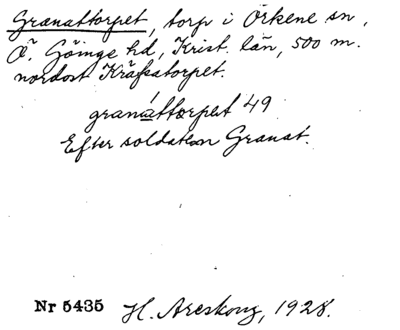 Granattorpet, torp i Örkene sn,
Ö. Göinge hd, Krist. län, 500 m.
nordost Kräftatorpet.
granáttorpet 49
Efter soldaten Granat.
Nr 5435 H. Areskoug, 1928.